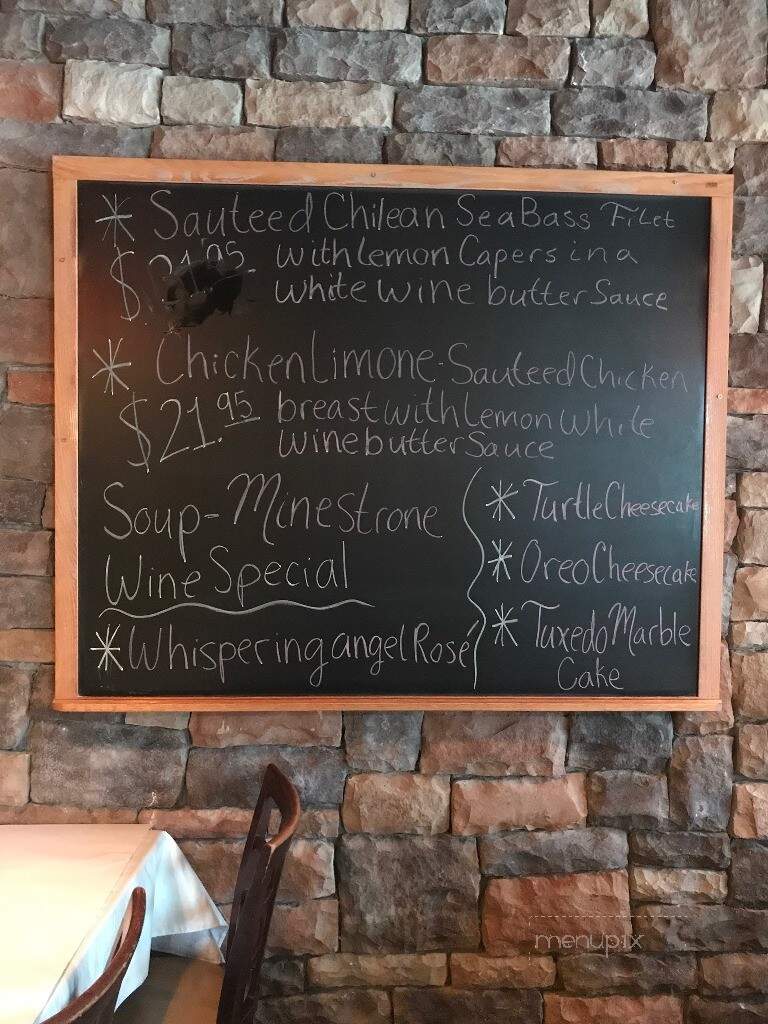 * Sauteed Chilean Sea Bass Filet
$ with Lemon Capers in a
white wine butter Sauce
* Chicken Limone - Sauteed Chicken
$21.95 breast with Lemon white
wine butter Sauce
Soup - Minestrone
Wine Special
* Whispering angel Rosé
* Turtle Cheesecake
* Oreo Cheesecake
* Tuxedo Marble
Cake
menupix